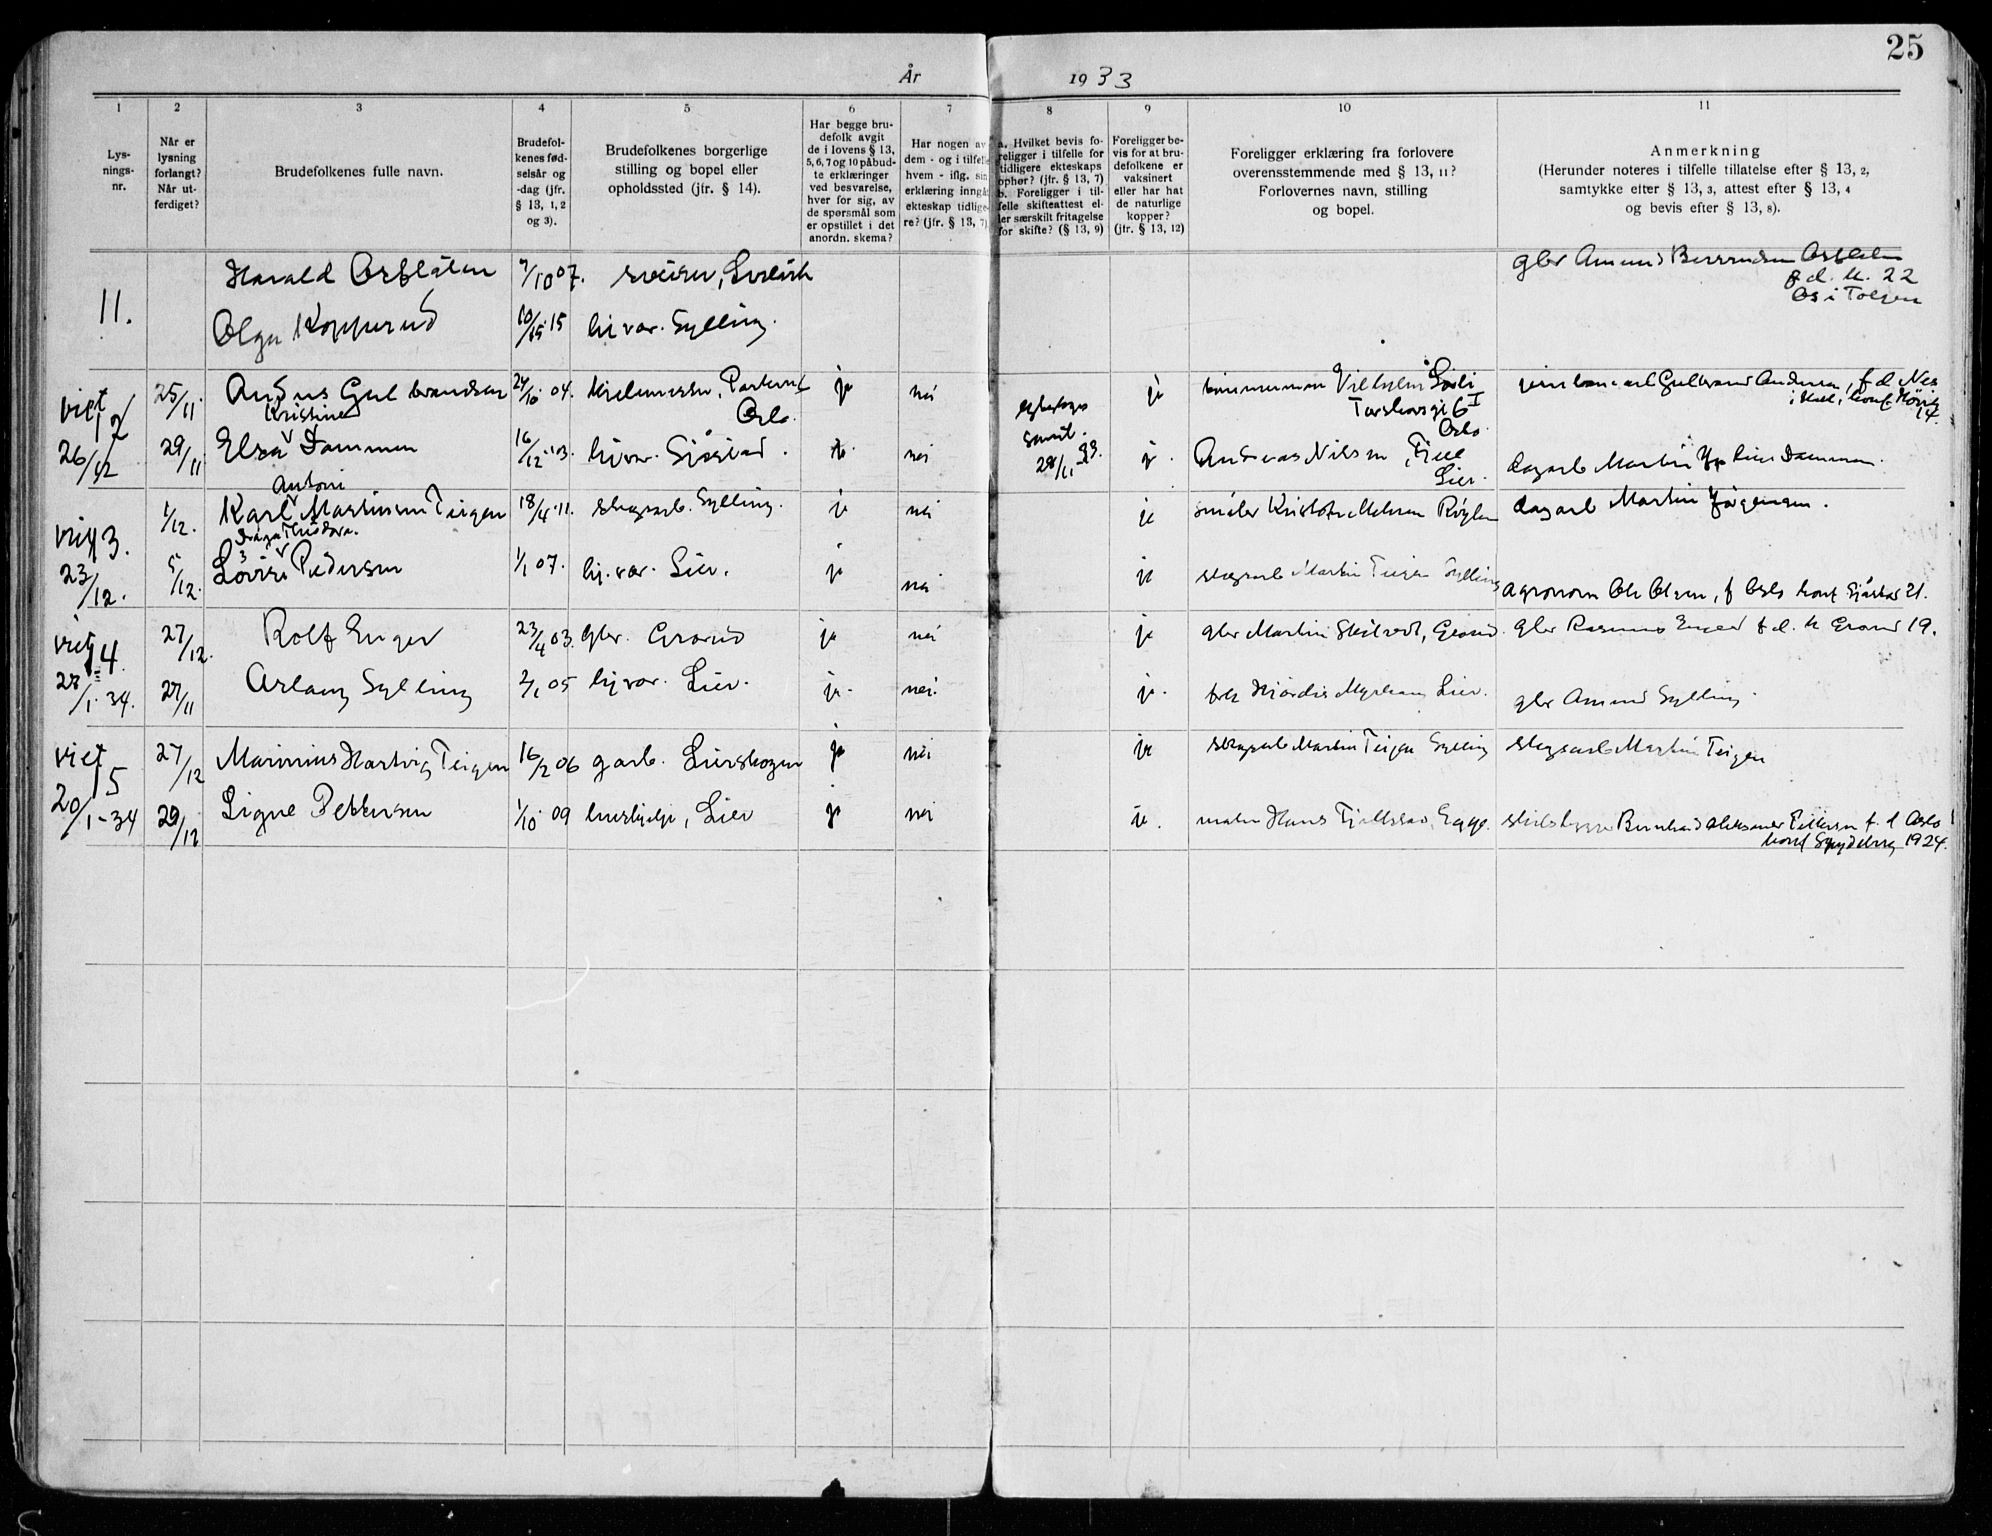 25
År 1933
1 2 3 4 5 6 7 8 9 10 11
Lys-
nings-
nr.
Når er
lysning
forlangt?
Når ut-
ferdiget?
Brudefolkenes fulle navn.
Brudefol-
kenes fød-
selsår og
-dag (jfr.
§ 13, 1, 2
og 3).
Brudefolkenes borgerlige
stilling og bopel eller
opholdssted (jfr. § 14).
Har begge bru-
defolk avgit
de i lovens § 13,
5, 6, 7 og 10 påbud-
te erklæringer
ved besvarelse,
hver for sig, av
de spørsmål som
er opstillet i det
anordn. skema?
Har nogen av
dem - og i tilfelle
hvem - iflg. sin
erklæring inngåt
ekteskap tidlige-
re? (jfr. § 13, 7)
a. Hvilket bevis fo-
religger i tilfelle for
tidligere ekteskaps
ophør? (jfr. § 13, 7)
b. Foreligger i til-
felle skifteattest el-
ler særskilt fritagelse
for skifte? (§ 13, 9)
Foreligger be-
vis for at bru-
defolkene er
vaksinert
eller har hat
de naturlige
kopper?
(jfr. § 13, 12)
Foreligger erklæring fra forlovere
overensstemmende med § 13, 11?
Forlovernes navn, stilling
og bopel.
Anmerkning
(Herunder noteres i tilfelle tillatelse efter § 13, 2,
samtykke efter § 13, 3, attest efter § 13, 4
og bevis efter § 13, 8).
11.
Harald 9/10 07. gbr Amund
f. d. k. 22
Os i Tolgen
Olga Kopperud 15 hj vær. Sylling.
viet 12 26/12
25/11. Gulbrandsen 24/10 04. Oslo. ja nei ja Vilhelm
Oslo
Kristine
29/11 Elsa Dammen 16/12 13. hj vær. Sjåstad. nei 28/11 33. ja. Andreas Nilsen,
Lier. dagarb Martin Dammen.
13. 23/12.
Antoni
1/12. Karl Martinsen Teigen 18/4 11. skogsarb. Sylling. ja nei ja Røyken dagarb Martin Jørgensen.
5/12. Lovise Pedersen 1/1 07. hj. vær. Lier. ja nei ja skogsarb Martin Teigen Sylling agronom Ole Olsen, f Oslo konf Sjåstad 21.
viet 14. 28/1-34.
27/12. Rolf Enger 23/4 03. gbr. Grorud ja nei ja gbr Martin Grorud. gbr Rasmus Enger f. d. k Grorud 19.
27/11 Arlaug Sylling 2/1 05 hj vær. Lier. ja. nei. ja. frk Hjørdis Myrhaug Lier. gbr Amund Sylling.
viet 15 20/1-34
27/12 Marinius Hartvig Teigen 16/2 06 garb. Lierskogen ja nei ja skogsarb Martin Teigen Sylling skogsarb Martin Teigen
29/12 Signe Pettersen 1/10 09 hushjelp, Lier ja nei ja. maler Hans Egge. Bernhard Aleksander Pettersen f. d Oslo
konf Spydeberg 1924.